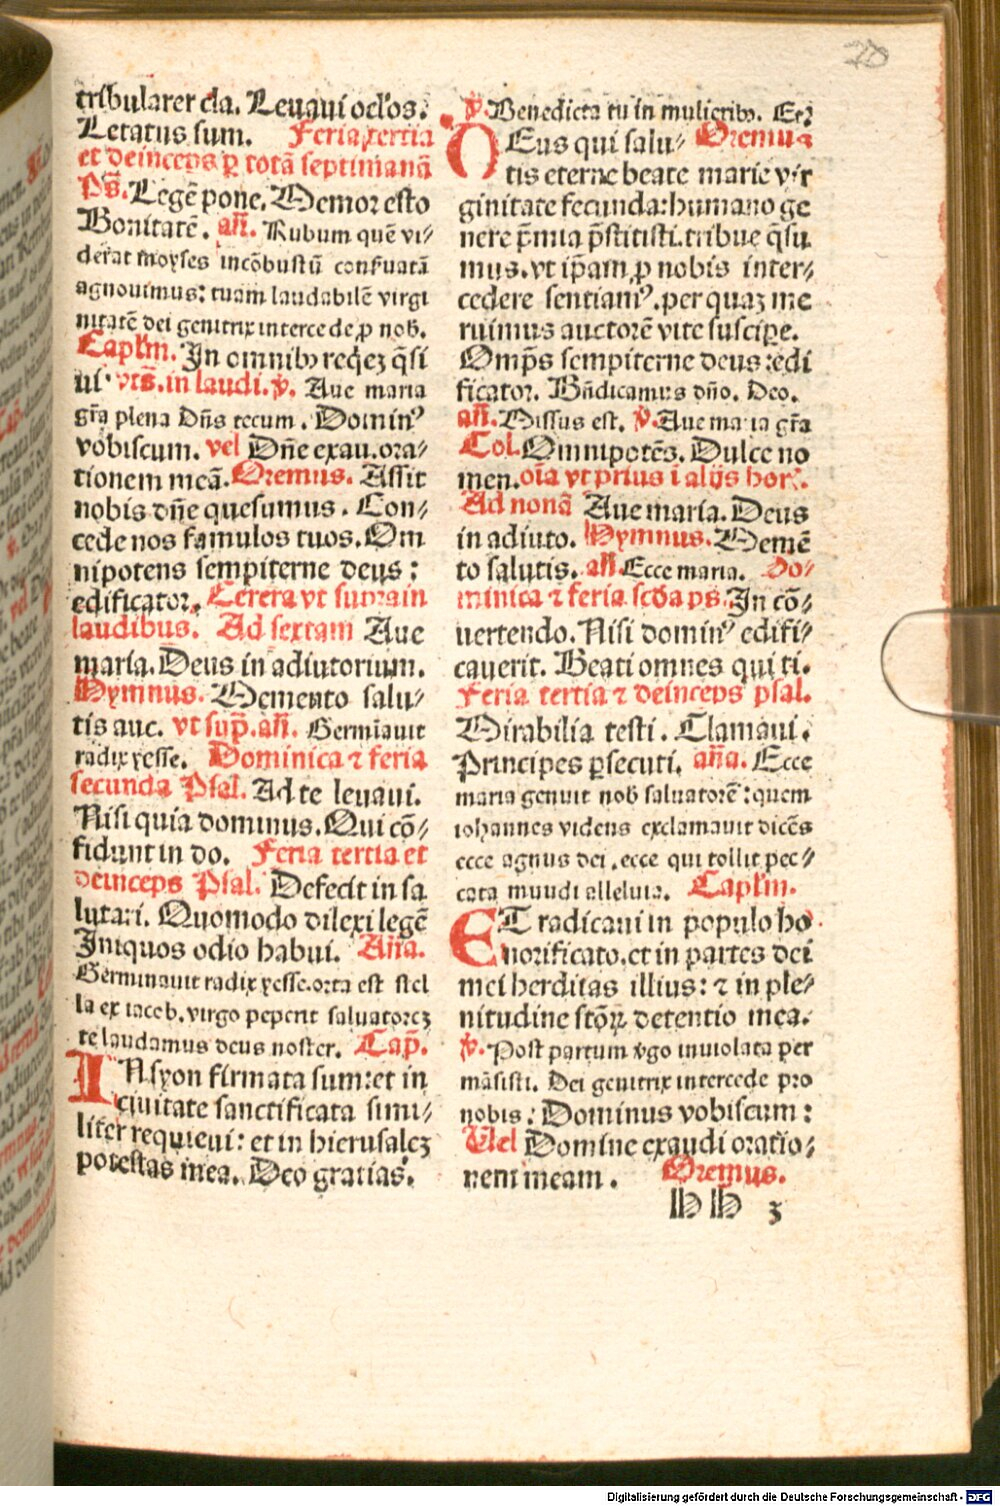 tribularer cla. Leuaui oclos.
Letatus sum. Feria tertia
et deinceps ꝑ totā septimanā
Ps̄. Legē pone. Memor esto
Bonitatē. añ. Rubum quē vi⸗
derat moyses incōbustū conseruatā
agnouimus: tuam laudabilē virgi
nitatē dei genitrix intercede ꝓ nob.
Caplm̄. In omnibꝰ reqeȝ q̄si
ui. vts̄. in laudi. ℣. Aue maria
gr̄a plena Dn̄s tecum. Dominꝰ
vobiscum. vel Dn̄e exau. ora⸗
tionem meā. Oremus. Assit
nobis dn̄e quesumus. Con⸗
cede nos famulos tuos. Om
nipotens sempiterne deus:
edificator. Cetera vt supra in
laudibus. Ad sextam Aue
maria. Deus in adiutorium.
Hymnus. Memento salu⸗
tis auc. vt sup̄. añ. Germīauit
radix yesse. Dominica ⁊ feria
secunda Psal. Ad te leuaui.
Nisi quia dominus. Qui cō⸗
fidunt in do. Feria tertia et
deinceps Psal. Defecit in sa
lutari. Quomodo dilexi legē
Iniquos odio habui. Aña.
Germinauit radix yesse. orta est stel
la ex iacob. virgo peperit saluatoreȝ
te laudamus deus noster. Cap̄.
IN syon firmata sum: et in
ciuitate sanctificata simi⸗
liter requieui: et in hierusaleȝ
potestas mea. Deo gratias.
℣. Benedicta tu in mulieribꝰ. Etꝛ
DEus qui salu⸗ Oremus
tis eterne beate marie vir
ginitate fecunda: humano ge
nere p̄mia p̄stitisti. tribue q̄su
mus. vt ip̄am ꝓ nobis inter⸗
cedere sentiamꝰ. per quaȝ me
ruimus auctorē vite suscipe.
Omp̄s sempiterne deus: edi
ficator. Bn̄dicamus dño. Deo.
añ. Missus est. ℣. Aue maria gr̄a
Col. Omnipotēs. Dulce no
men. oīa vt prius ī alijs hor.
Ad nonā Aue maria. Deus
in adiuto. Hymnus. Memē
to salutis. añ. Ecce maria. Do⸗
minica ⁊ feria scd̄a ps. In cō⸗
uertendo. Nisi dominꝰ edifi⸗
cauerit. Beati omnes qui ti.
Feria tertia ⁊ deinceps psal.
Mirabilia testi. Clamaui.
Principes ꝑsecuti. aña. Ecce
maria genuit nob saluatorē: quem
iohannes videns exclamauit dicēs
ecce agnus dei. ecce qui tollit pec⸗
cata mundi alleluia. Caplm̄.
ET radicaui in populo ho
norificato. et in partes dei
mei herditas illius: ⁊ in ple⸗
nitudine stōꝝ detentio mea.
℣. Post partum v̄go inuiolata per
māsisti. Dei genitrix intercede pro
nobis: Dominus vobiscum:
Uel Domine exaudi oratio⸗
nem meam. Oremus.
hh 3
Digitalisierung gefördert durch die Deutsche Forschungsgemeinschaft - DFG